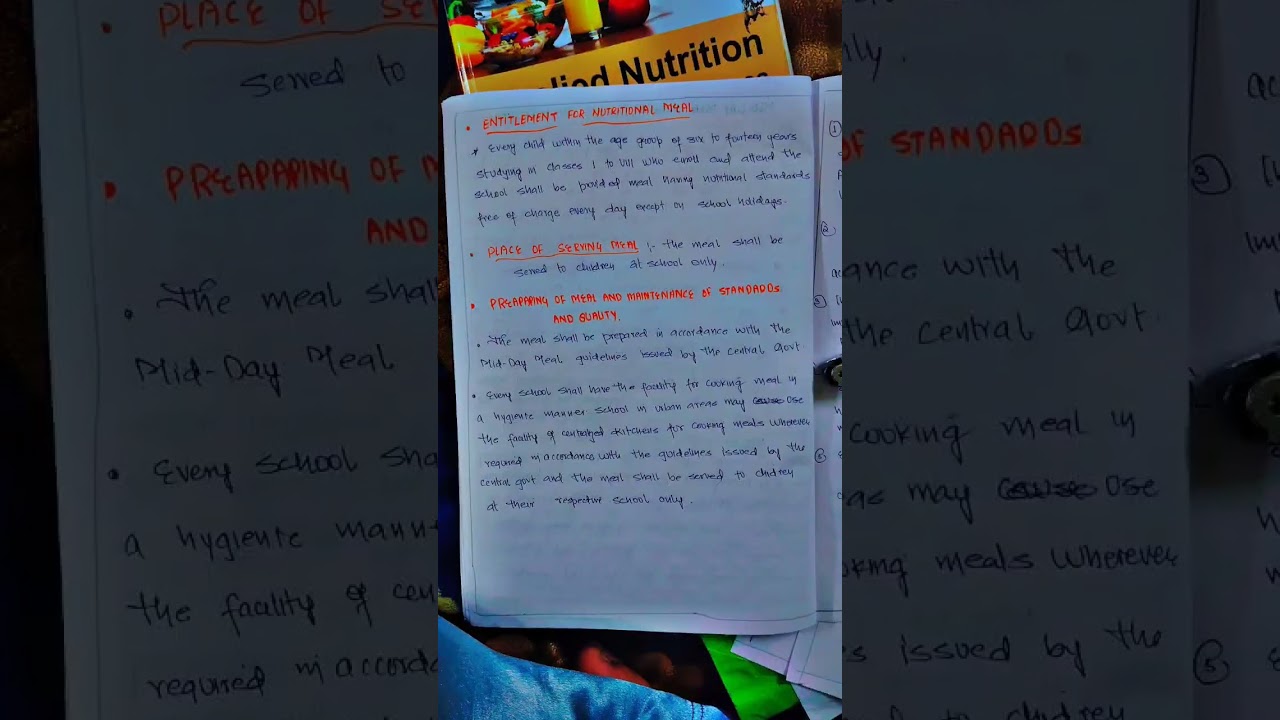 lied Nutrition
• ENTITLEMENT FOR NUTRITIONAL MEAL
* Every child within the age group of six to fourteen years
studying in classes I to VIII who enroll and attend the
school shall be meal having nutritional standards
free of charge every day except on school holidays.
• PLACE OF SERVING MEAL :- the meal shall be
served to children at school only.
• PREAPARING OF MEAL AND MAINTENANCE OF STANDADDS
AND QUALITY.
• The meal shall be prepared in accordance with the
Mid-Day Meal guidelines issued by the central Govt.
• Every school shall have the facility for cooking meal in
a hygiente manner school in urban areas may Use
the facility of centralized kitchens for cooking meals wherever
required in accordance with the guidelines issued by the
central govt and the meal shall be served to chidren
at their respective school only.